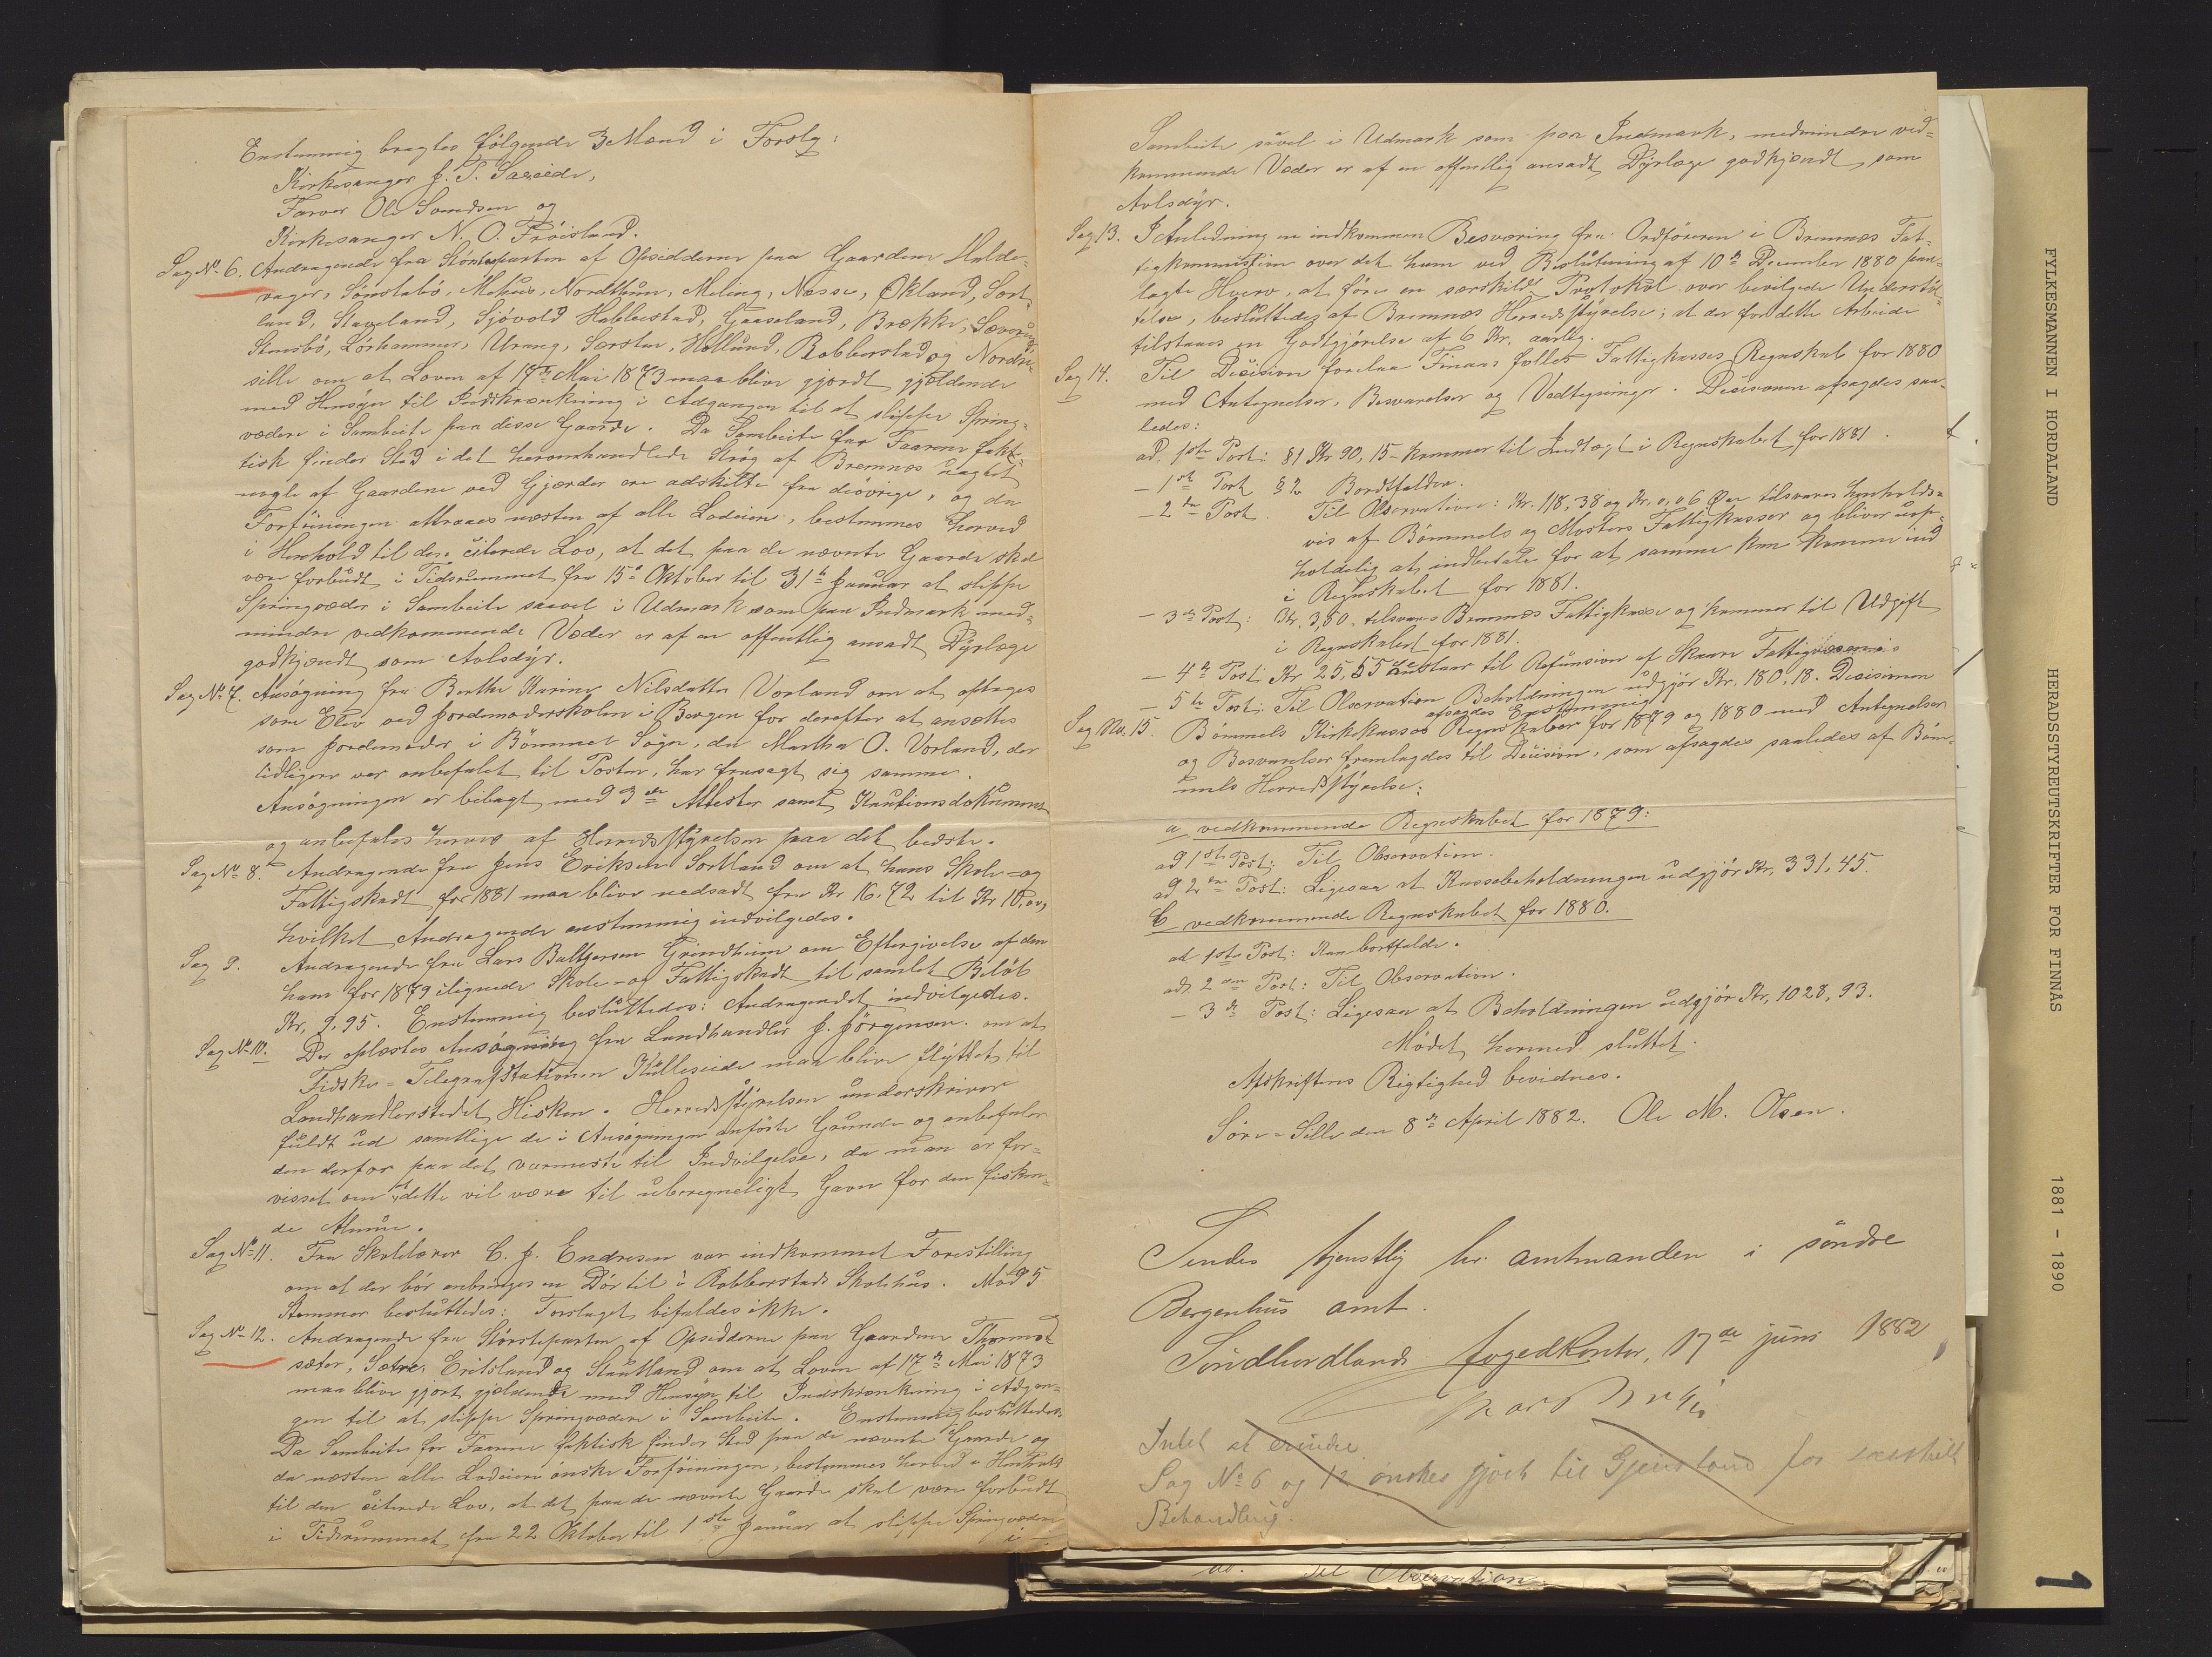 Enstemmig bragtes følgende 3 Mænd i Forslg:
Kirkesanger J. T.
Farver Ole Somdsen og
Kirkesanger N. O. Frøisland.
Sag No 6. Andragende fra Störsteparten af Opsidderne paa Gaardene Halde-
vager, Sönstabö, Mehus, Nordthun, Meling, Næsse, Økland, Sort-
land, Staveland, Sjövold Habbestad, Gaaseland, Brække,
Stensbö, Lörhammer, Urang, Særsten, Hollund, Robberstad og Nordre
sille om at Loven af 17de Mai 1873 maa blive gjordt gjældende
med Hensyn til Indskrænkning i Adgangen til at slippe Spring-
vædere i Sambeite paa disse Gaarde. Da Sambeite for Faarene fakt-
tisk finder Sted i det heromhandlede Strög af Bremnæs uagtet
nogle af Gaardene ved Gjærder ere adskilte fra deövrige, og da
Forföiningen attraaes næsten af alle Lodeiere, bestemmes herved
i Henhold til den citerede Lov, at det paa de nævnte Gaarde skal
være forbudt i Tidsrummet fra 15de Oktober til 31te Januar at slippe
Springvæder i Sambeite saavel i Udmark som paa Indmark med-
mindre vedkommende Væder er af en offentlig ansadt Dyrlæge
godkjendt som Avlsdyr.
Sag No 7. Ansøgning fra Berthe Karine Nilsdatter Vorland om at optages
som Elev ved Jordemoderskolen i Bergen for derefter at ansættes
som Jordemoder i Bömmel Sogn, da Martha O. Vorland, der
tidligere var anbefalet til Posten, har frasagt sig samme.
Ansögningen er bilagt med 3de Attester samt Kautionsdokument
og anbefales herved af Herredsstyrelsen paa det bedste.
Sag No 8. Andragende fra Jens Eriksen Sortland om at hans Skole- og
Fattigskadt for 1881 maa blive nedsadt fra Kr 16.72 til Kr 10,00,
hvilket Andragende enstemmig indvilgedes.
Sag 9. Andragende fra Lars Baltzersen Grindheim om Eftergivelse af den
ham for 1879 ilignede Skole- og Fattigskadt til samlet Belöb
Kr. 9,95. Enstemmig besluttedes: Andragendet indvilgedes.
Sag No 10. Der oplæstes Ansøgning fra Landhandler J. Jörgensen om at
Fidske-Telegrafstationen Kulleseide maa blive flyttet til
Landhandlerstedet Hisken. Herredsstyrelsen underskriver
fuldt ud samtlige de i Ansögningen anförte Grunde og anbefaler
den derfor paa det varmeste til Indvilgelse, da man er for-
visset om at dette vil være til uberegneligt Gavn for den fisken-
de Almue.
Sag No 11. Fra Skolelærer C. J. Endresen var indkommet Forestilling
om at der bör anbringes en Dör til i Robberstads Skolehus. Mod 5
Stemmer besluttedes: Forslaget bifaldes ikke.
Sag No 12. Andragende fra Störsteparten af Opsidderne paa Gaardene Thormod
sæter, Sætre, Eritsland og Stautland om at Loven af 17de Mai 1873
maa blive gjort gjældende med Hensyn til Indskrænkning i Adgan-
gen til at slippe Springvædere i Sambeite. Enstemmig besluttedes:
Da Sambeite for Faarene faktisk finder Sted paa de nævnte Gaarde og
da næsten alle Lodeiere ønske Forföiningen, bestemmes herved i Henhold
til den citerede Lov, at det paa de nævnte Gaarde skal være forbudt
i Tidsrummet fra 22 Oktober til 1ste Januar at slippe Springvædere
i
Sambeite såvel i Udmark som paa Indmark, medmindre ved-
kommende Væder er af en offentlig ansadt Dyrlæge godkjendt som
Avlsdyr.
Sag 13. I Anledning en indkommen Besværing fra Ordföreren i Bremnæs Fat-
tigkommission over det ham ved Beslutning af 10de December 1880 paa-
lagte Hverv, at före en særskildt Protokol over bevilgede Understöt-
telser, besluttedes af Bremnæs Herredsstyrelse; at der for dette Arbeide
tilstaaes en Godtgjörelse af 6 Kr. aarlig.
Sag 14. Til Decision forelaa Finaas fælles Fattigkasses Regnskab for 1880
med Antegnelser, Besvarelser og Vedtegninger. Decisionen afsagdes saa-
ledes:
ad. 1ste Post: §1 Kr 90,15 kommer til Indtægt i Regnskabet for 1881.
- 1ste Post §2 Bortfalder.
- 2den Post. Til Observation: Kr. 118,38 og Kr. 0,06 Øre tilsvares henholds-
vis af Bömmels og Mosters Fattigkasser og bliver uop-
holdelig at indbetale for at samme kan komme ind
i Regnskabet for 1881.
- 3de Post: Kr. 3,80 tilsvares Bremnæs Fattigkasse og kommer til Udgift
i Regnskabet for 1881.
- 4de Post: Kr 25,55 henstaar til Refusion af Skaare Fattigvæsen.
- 5te Post: Til Observation Beholdningen udgjör Kr. 180,18. Decisionen
afsagdes Enstemmig
Sag No. 15. Bömmels Kirkekasses Regnskaber for 1879 og 1880 med Antegnelser
og Besvarelser fremlagdes til Decision, som afsagdes saaledes af Böm-
mels Herredsstyrelse:
a vedkommende Regnskabet for 1879:
ad 1ste Post: Til Observation.
ad 2den Post: Ligesaa at Kassebeholdningen udgjör Kr. 331,45.
b vedkommende Regnskabet for 1880.
ad 1ste Post: Kan bortfalde.
ad. 2den Post: Til Observation.
- 3de Post: Ligesaa at Beholdningen udgjör Kr. 1028,93.
Mødet hermed sluttet.
Afskriftens Rigtighed bevidnes.
Söre-Sille den 8de April 1882. Ole M. Olsen.
Sendes tjenstlig hr. amtmanden i söndre
Bergenhus amt.
Söndhordlands fogedkontor, 17de juni 1882
Intet at erindre
Sag No 6 og 12 ønskes gjort til Gjenstand for særskilt
Behandling.
Til Observation
FYLKESMANNEN I HORDALAND HERADSSTYREUTSKRIFTER FOR FINNÅS 1881 - 1890
1